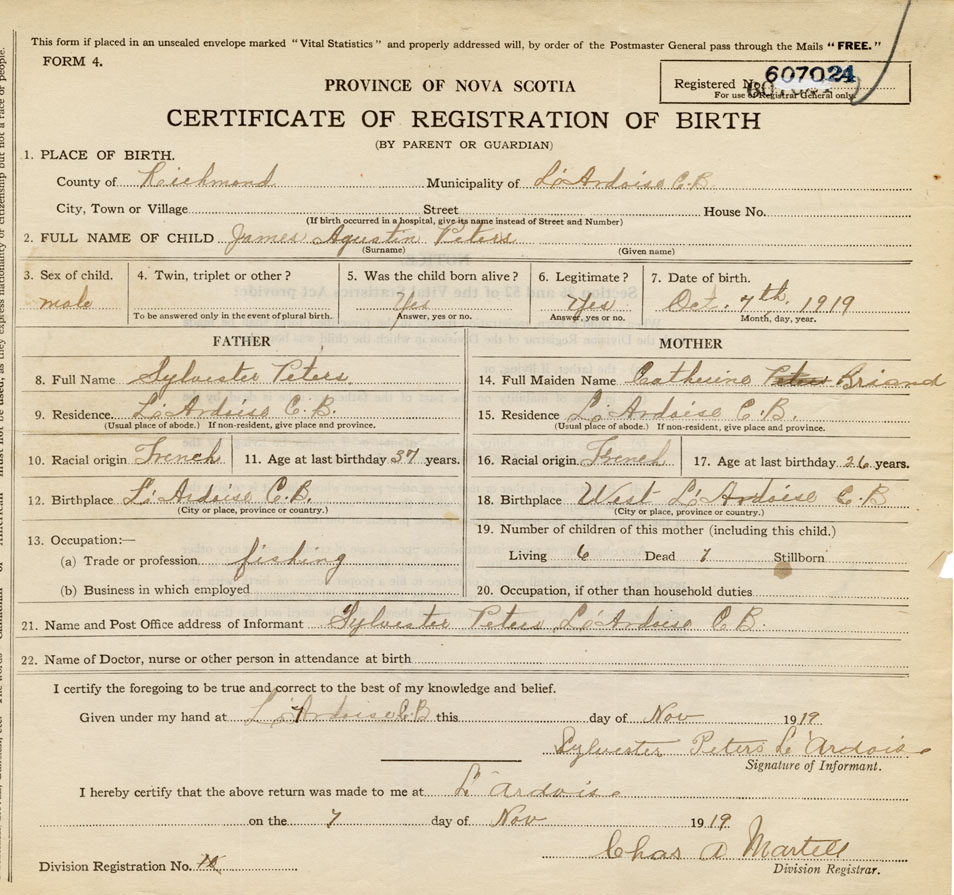 This form if placed in an unsealed envelope marked "Vital Statistics" and properly addressed will, by order of the Postmaster General pass through the Mails "FREE."
FORM 4.
PROVINCE OF NOVA SCOTIA
Registered No. 607024
For use of Registrar General only.
CERTIFICATE OF REGISTRATION OF BIRTH
(BY PARENT OR GUARDIAN)
1. PLACE OF BIRTH.
County of Richmond Municipality of L'Ardoise C.B.
City, Town or Village Street House No.
(If birth occurred in a hospital, give its name instead of Street and Number)
2. FULL NAME OF CHILD James Agustin Peters
(Surname) (Given name)
3. Sex of child. 4. Twin, triplet or other? 5. Was the child born alive? 6. Legitimate? 7. Date of birth.
male Yes Yes Oct. 7th, 1919
To be answered only in the event of plural birth. Answer, yes or no. Answer, yes or no. Month, day, year.
FATHER
8. Full Name Sylvester Peters
9. Residence. L'Ardoise C.B.
(Usual place of abode.) If non-resident, give place and province.
10. Racial origin French 11. Age at last birthday 37 years.
12. Birthplace L'Ardoise C.B.
(City or place, province or country.)
13. Occupation:—
(a) Trade or profession fishing
(b) Business in which employed
MOTHER
14. Full Maiden Name Catherine Peters Briand
15. Residence L'Ardoise C.B.
(Usual place of abode.) If non-resident, give place and province.
16. Racial origin French 17. Age at last birthday 26 years.
18. Birthplace West L'Ardoise C.B
(City or place, province or country.)
19. Number of children of this mother (including this child.)
Living 6 Dead 1 Stillborn
20. Occupation, if other than household duties
21. Name and Post Office address of Informant Sylvester Peters L'Ardoise C.B.
22. Name of Doctor, nurse or other person in attendance at birth
I certify the foregoing to be true and correct to the best of my knowledge and belief.
Given under my hand at L'Ardoise C.B this day of Nov 1919
Sylvester Peters L'Ardoise
Signature of Informant.
I hereby certify that the above return was made to me at L'Ardoise
on the 7 day of Nov 1919
Chas A Martell
Division Registrar.
Division Registration No.